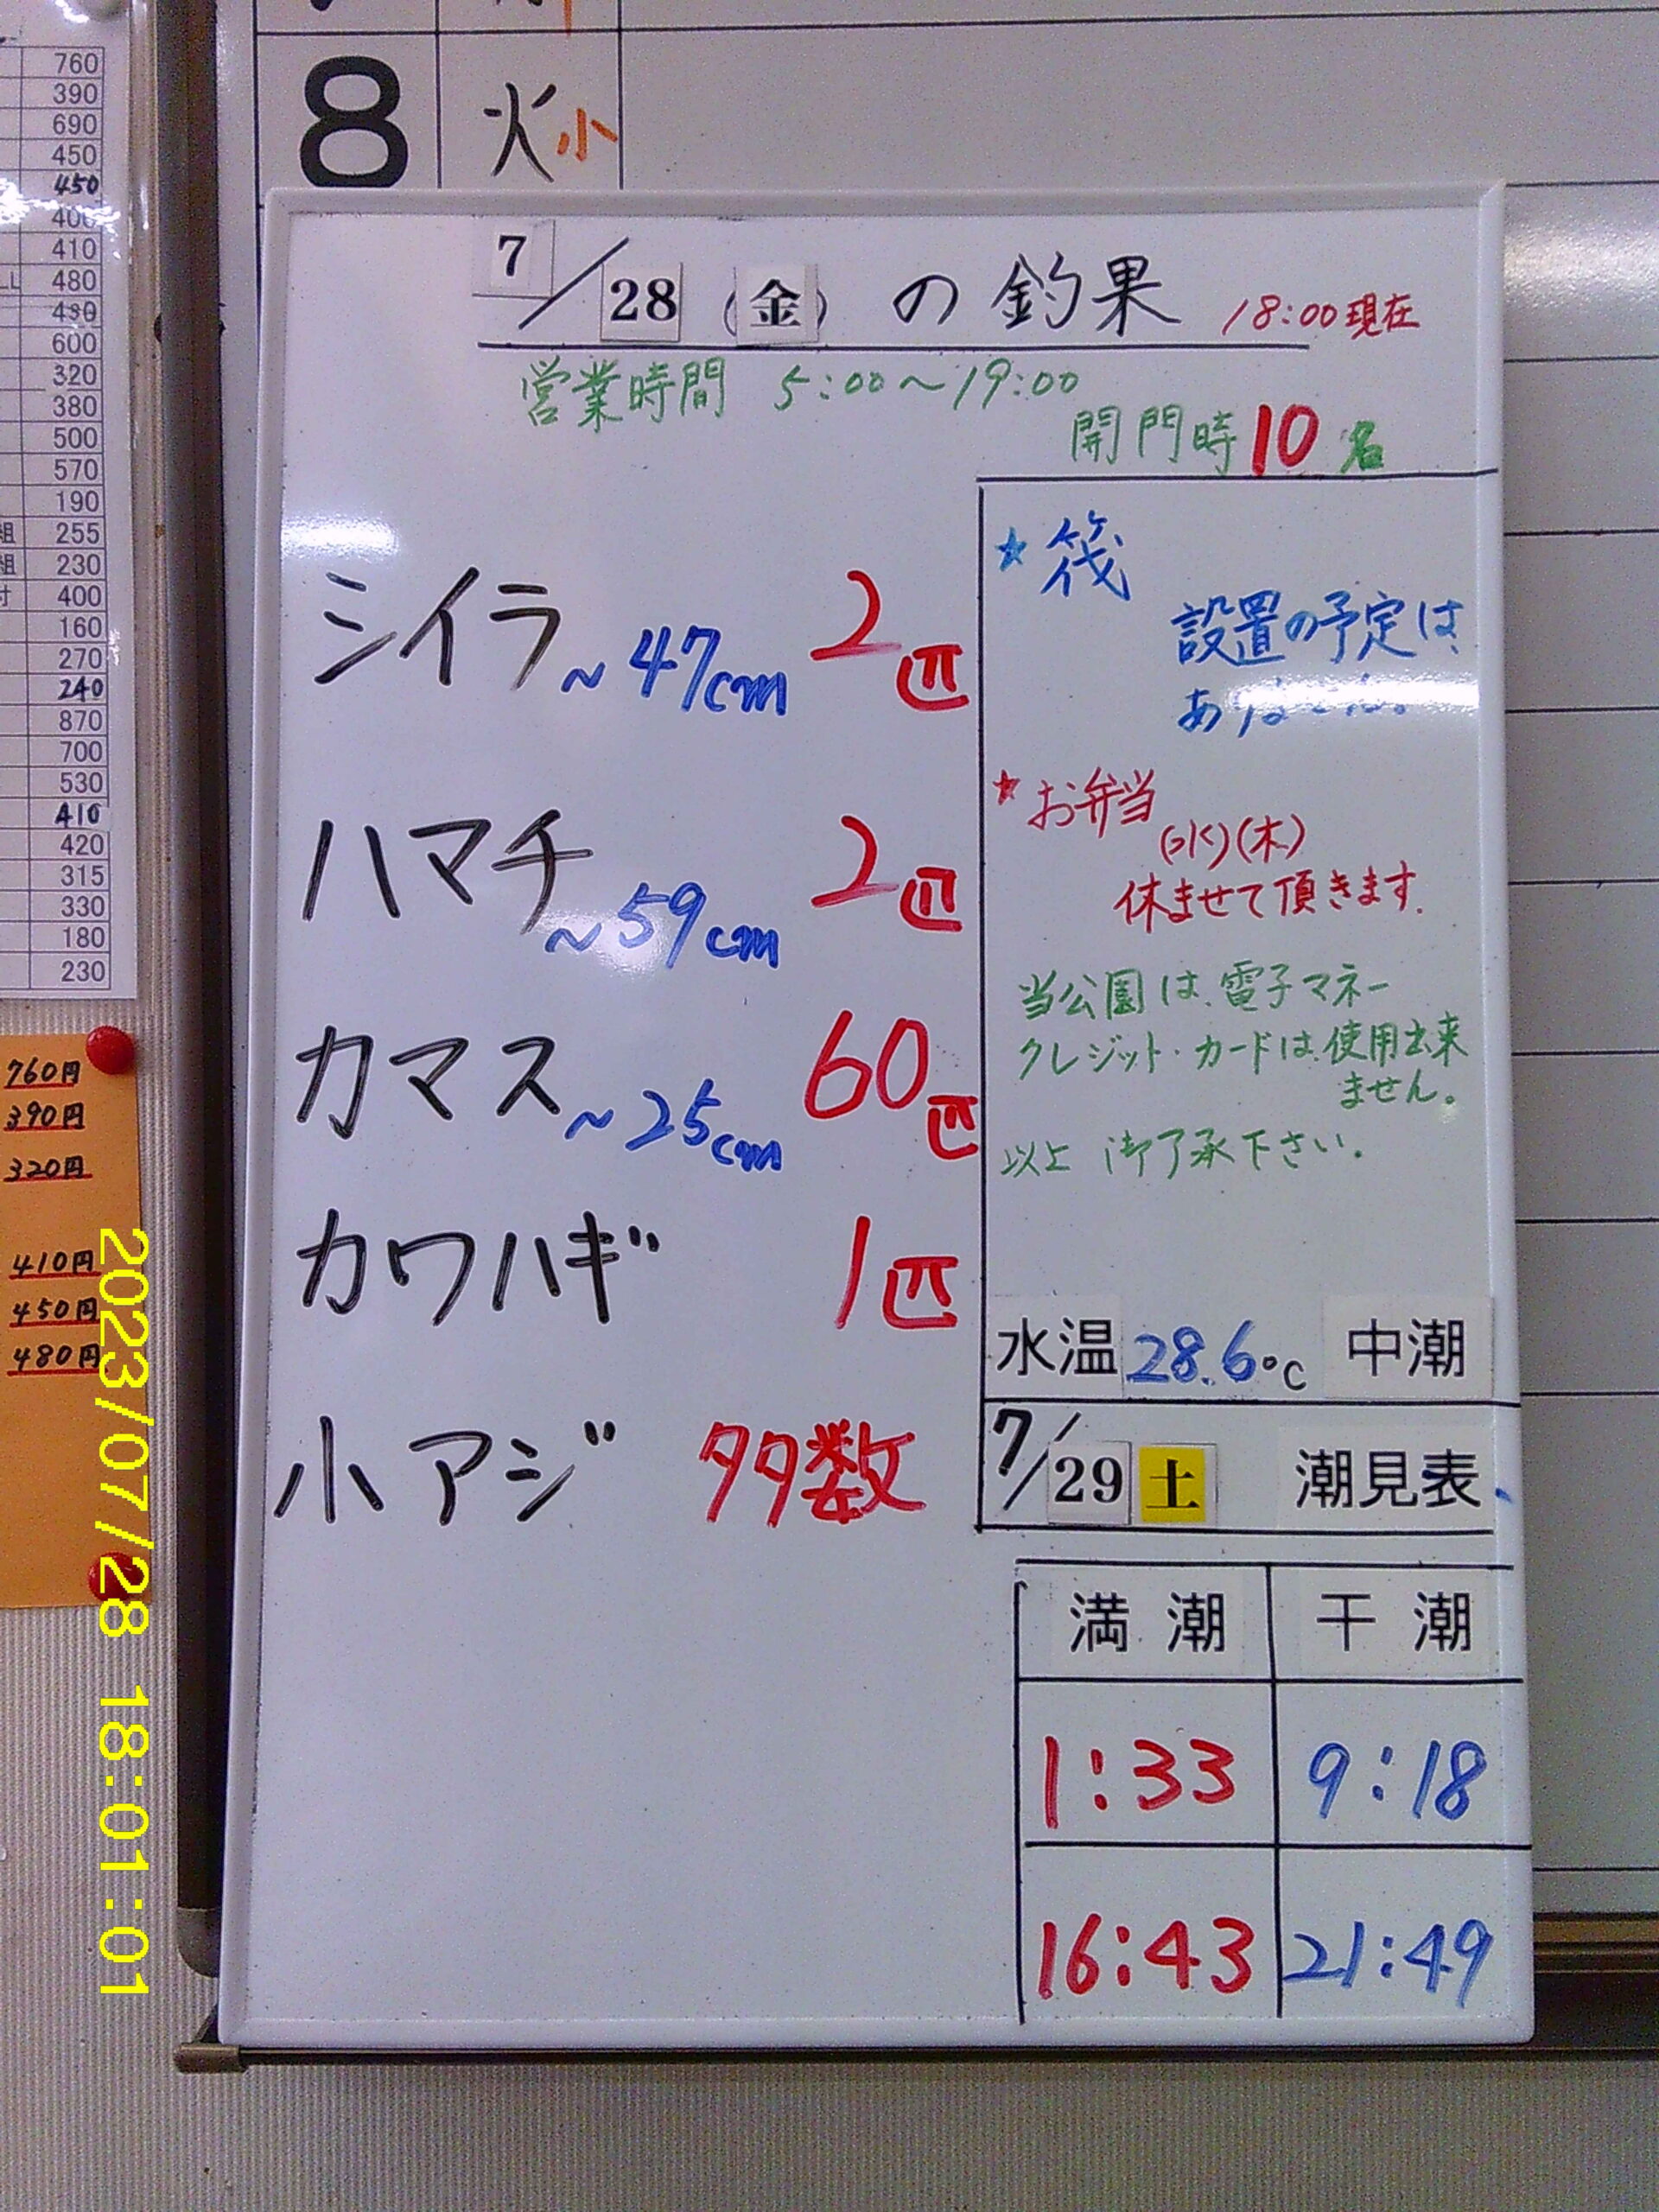 8 火 小
7/28(金)の釣果 18:00現在
営業時間 5:00～19:00
開門時10名
シイラ ～47cm 2匹
ハマチ ～59cm 2匹
カマス ～25cm 60匹
カワハギ 1匹
小アジ 多数
★筏
設置の予定は、
★お弁当
(水)(木)
休ませて頂きます.
当公園は、電子マネー
クレジット・カードは、使用出来
ません。
以上 御了承下さい.
水温 28.6℃ 中潮
7/29 土 潮見表
満潮 干潮
1:33 9:18
16:43 21:49
760
390
690
450
450
400
410
480
430
600
320
380
500
570
190
組 255
組 230
400
160
270
240
870
700
530
410
420
315
330
180
230
760円
390円
320円
410円
450円
480円
2023/07/28 18:01:01